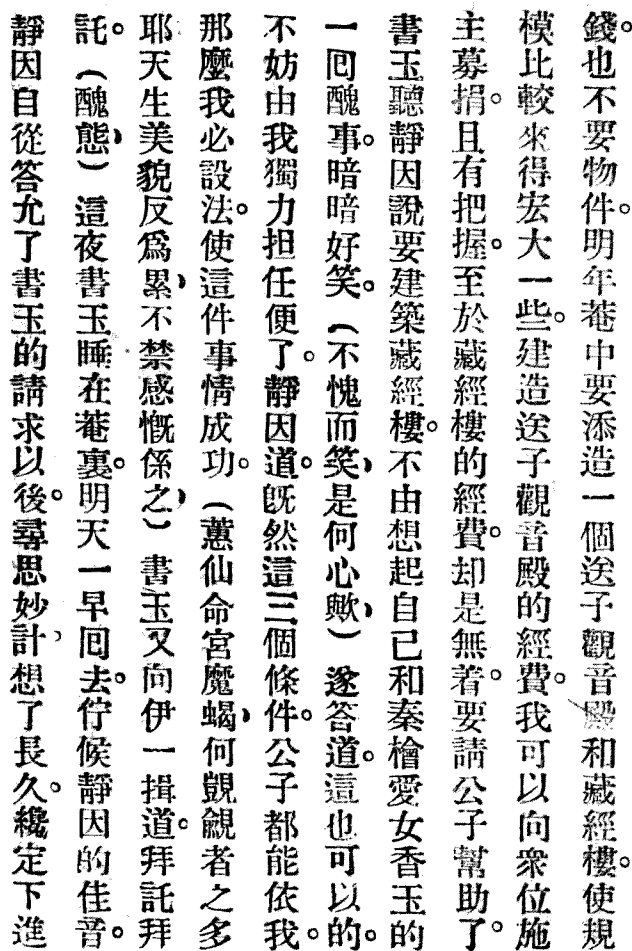 錢。也不要物件。明年菴中要添造一個送子觀音殿和藏經樓。使規
模比較來得宏大一些。建造送子觀音殿的經費。我可以向衆位施
主募捐。且有把握。至於藏經樓的經費。却是無着。要請公子幫助了。
書玉聽靜因說要建築藏經樓。不由想起自己和秦檜愛女香玉的
一囘醜事。暗暗好笑。(不愧而笑，是何心歟，)遂答道。這也可以的。
不妨由我獨力担任便了。靜因道。旣然這三個條件。公子都能依我。
那麼我必設法。使這件事情成功。(蕙仙命宮魔蝎，何覬覦者之多
耶天生美貌反爲累，不禁感慨係之，)書玉又向伊一揖道。拜託拜
託。(醜態，)這夜書玉睡在菴裏。明天一早囘去。佇候靜因的佳音。
靜因自從答允了書玉的請求以後。尋思妙計，想了長久。纔定下進